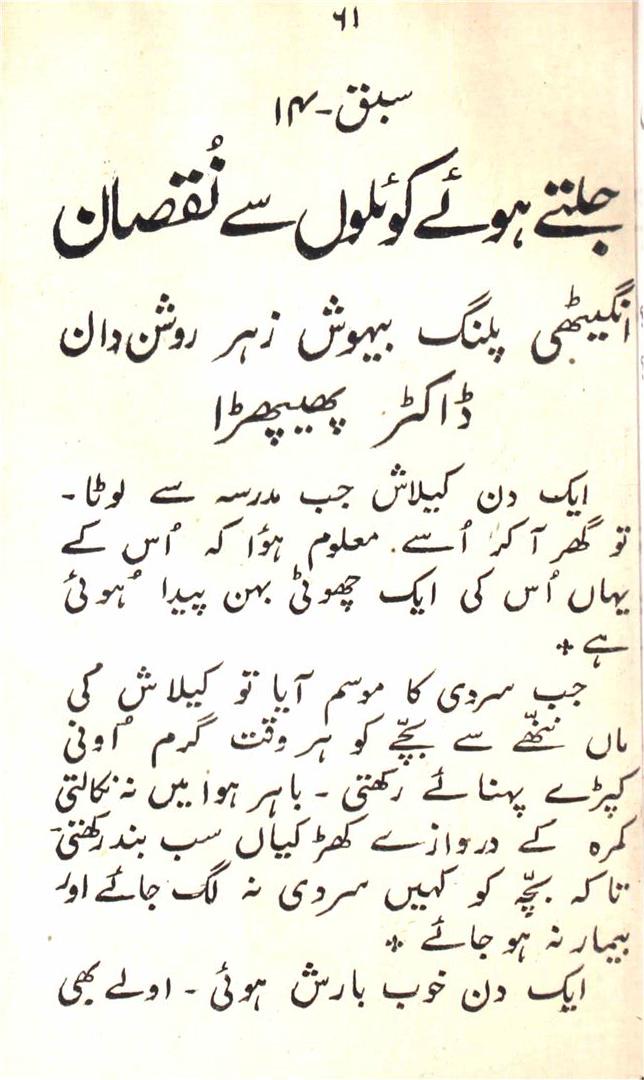 ۶۱
سبق - ۱۴
جلتے ہوئے کوئلوں سے نُقصان
انگیٹھی پلنگ بیہوش زہر روشن دان
ڈاکٹر پھیپھڑا
ایک دن کیلاش جب مدرسہ سے لوٹا -
تو گھر آ کر اُسے معلوم ہؤا کہ اُس کے
یہاں اُس کی ایک چھوٹی بہن پیدا ہُوئی
ہے *
جب سردی کا موسم آیا تو کیلاش کی
ماں ننّھے سے بچّے کو ہر وقت گرم اُونی
کپڑے پہنائے رکھتی - باہر ہوا میں نہ نکالتی
کمرہ کے دروازے کھڑکیاں سب بند رکھتی
تاکہ بچّہ کو کہیں سردی نہ لگ جائے اور
بیمار نہ ہو جائے *
ایک دن خوب بارش ہوئی - اولے بھی